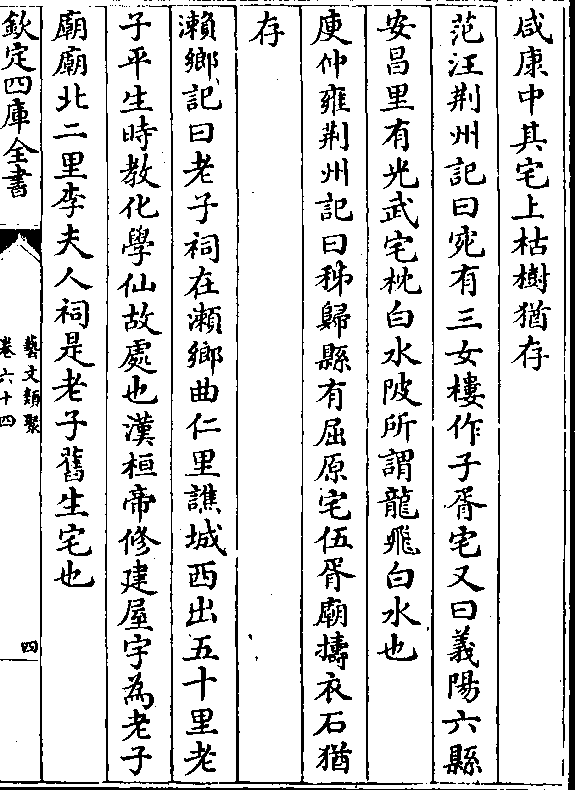 咸康中其宅上枯樹猶存
范汪荆州記曰宛有三女樓作子胥宅又曰義陽六縣
安昌里有光武宅枕白水陂所謂龍飛白水也
庾仲雍荆州記曰秭歸縣有屈原宅伍胥廟擣衣石猶
存
瀨鄉記曰老子祠在瀨鄉曲仁里譙城西出五十里老
子平生時教化學仙故處也漢桓帝修建屋宇為老子
廟廟北二里李夫人祠是老子舊生宅也
欽定四庫全書
藝文類聚
卷六十四
四